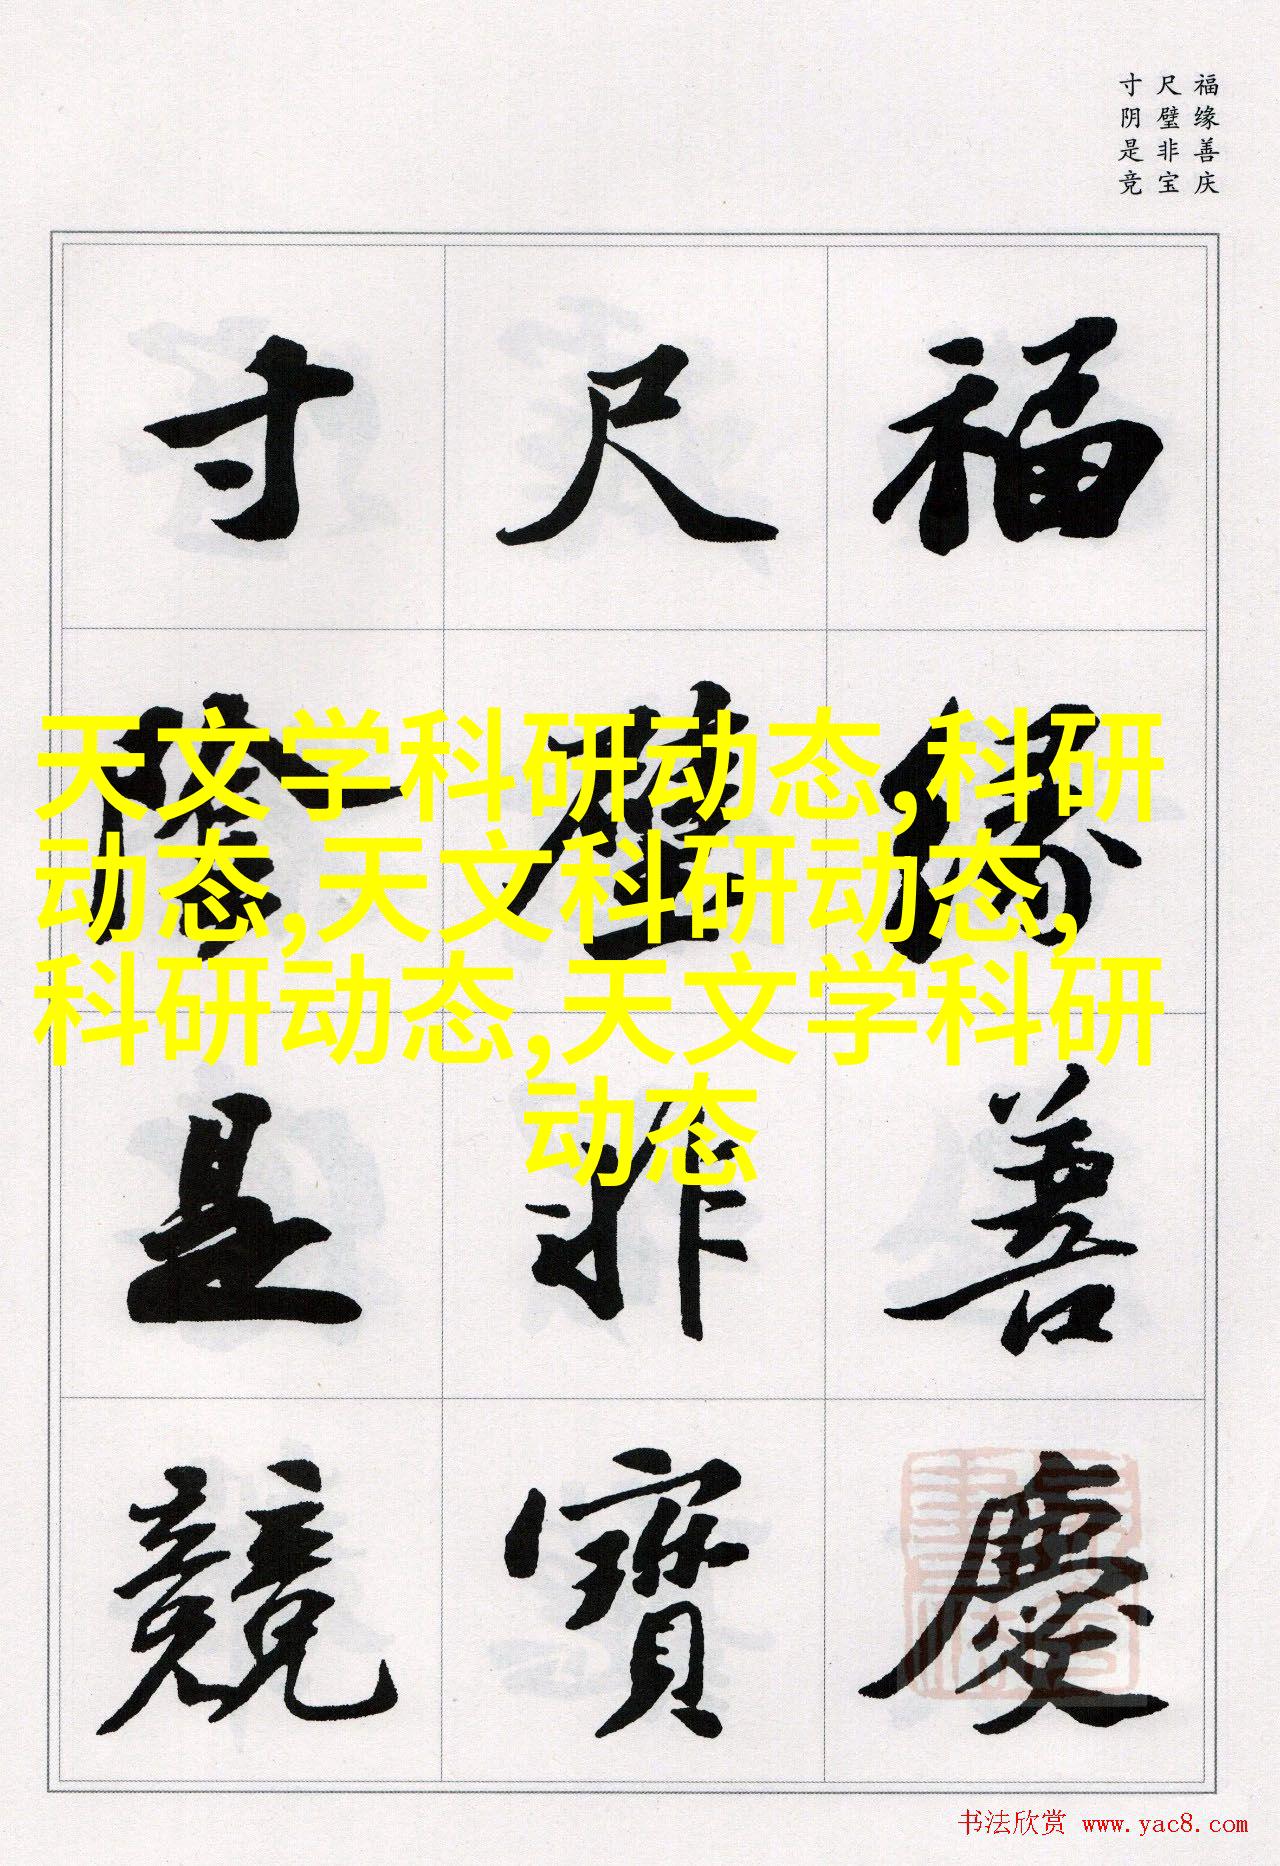 福缘善庆
尺璧非宝
寸阴是竞
福緣善慶
尺璧非寶
寸陰是競
天文学科研动态,科研
动态,天文科研动态,
科研动态,天文学科研
动态
书法欣赏 www.yac8.com